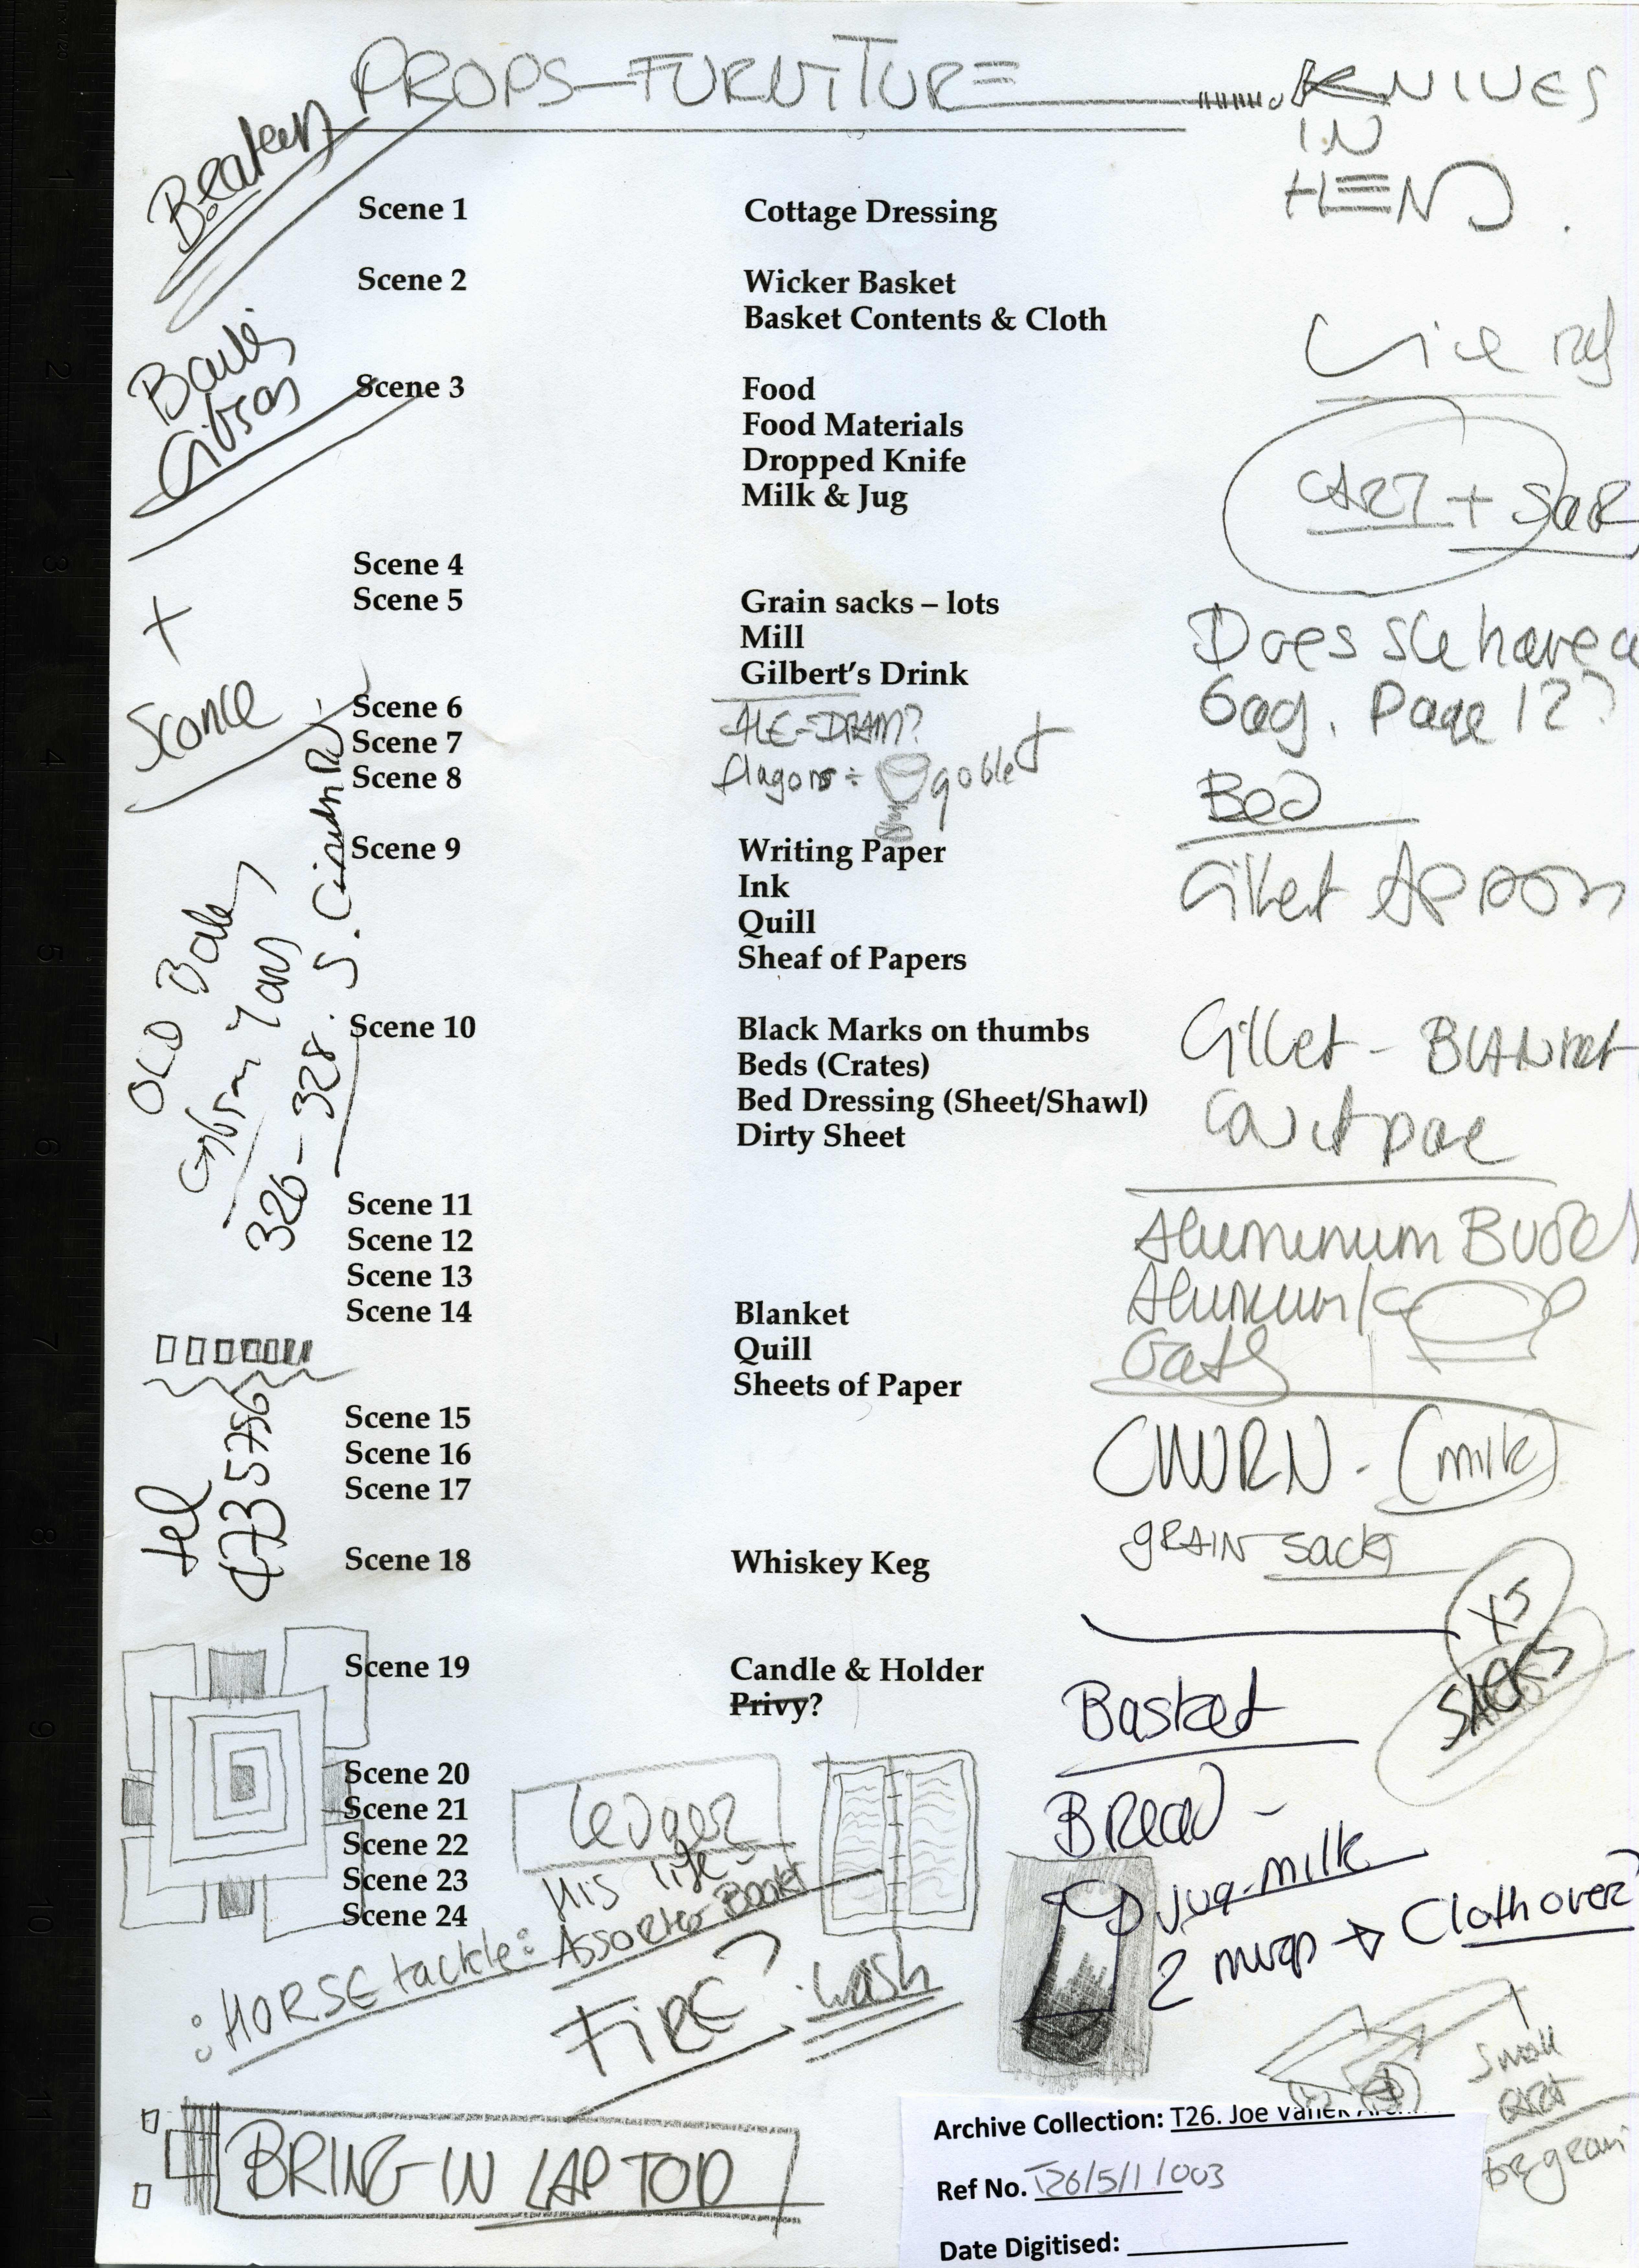 PROPS-FURNITURE
KNIVES
IN
HENS.
Scene 1 Cottage Dressing
Scene 2 Wicker Basket
Basket Contents & Cloth
Scene 3 Food
Food Materials
Dropped Knife
Milk & Jug
CART +
Scene 4
Scene 5 Grain sacks – lots
Mill
Gilbert's Drink
Does she have a
bag. Page 12?
Sconce
Scene 6
Scene 7
Scene 8
ALE-DRAM?
flagons ÷ goblet
Bed
Scene 9 Writing Paper
Ink
Quill
Sheaf of Papers
Apron
OLD
326-328. S.
Scene 10 Black Marks on thumbs
Beds (Crates)
Bed Dressing (Sheet/Shawl)
Dirty Sheet
BLANKET
Scene 11
Scene 12
Scene 13
Scene 14 Blanket
Quill
Sheets of Paper
Aluminum
Aluminum
Bath
Scene 15
Scene 16
Scene 17
CHURN - (milk)
GRAIN sacks
tel
4735756
Scene 18 Whiskey Keg
X5
SACKS
Scene 19 Candle & Holder
Privy?
Basket
Scene 20
Scene 21
Scene 22
Scene 23
Scene 24
Ledger
His life -
Assorted Books
BREAD -
jug-milk
2 mugs → Cloth over?
: HORSE tackle:
FIRE? . wash
small
cart
for grain
BRING IN LAPTOP
Archive Collection: T26. Joe Vanek
Ref No. T26/5/1/003
Date Digitised: